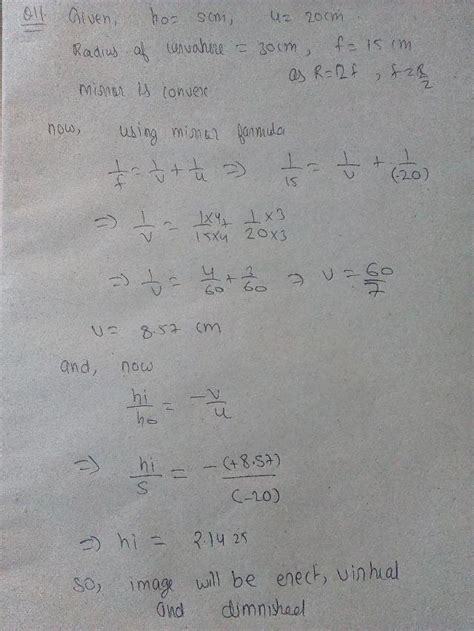 Q11 Given, ho= 5cm, u= 20cm
Radius of curvature = 30cm, f= 15 cm
as R=2f, f=R/2
mirror is convex
now, using mirror formula
1/f = 1/v + 1/u => 1/15 = 1/v + 1/(-20)
=> 1/v = 1x4/15x4 + 1x3/20x3
=> 1/v = 4/60 + 3/60 => v = 60/7
v= 8.57 cm
and, now
hi/ho = -v/u
=> hi/5 = -(+8.57)/(-20)
=> hi = 2.1425
so, image will be erect, virtual
and diminished